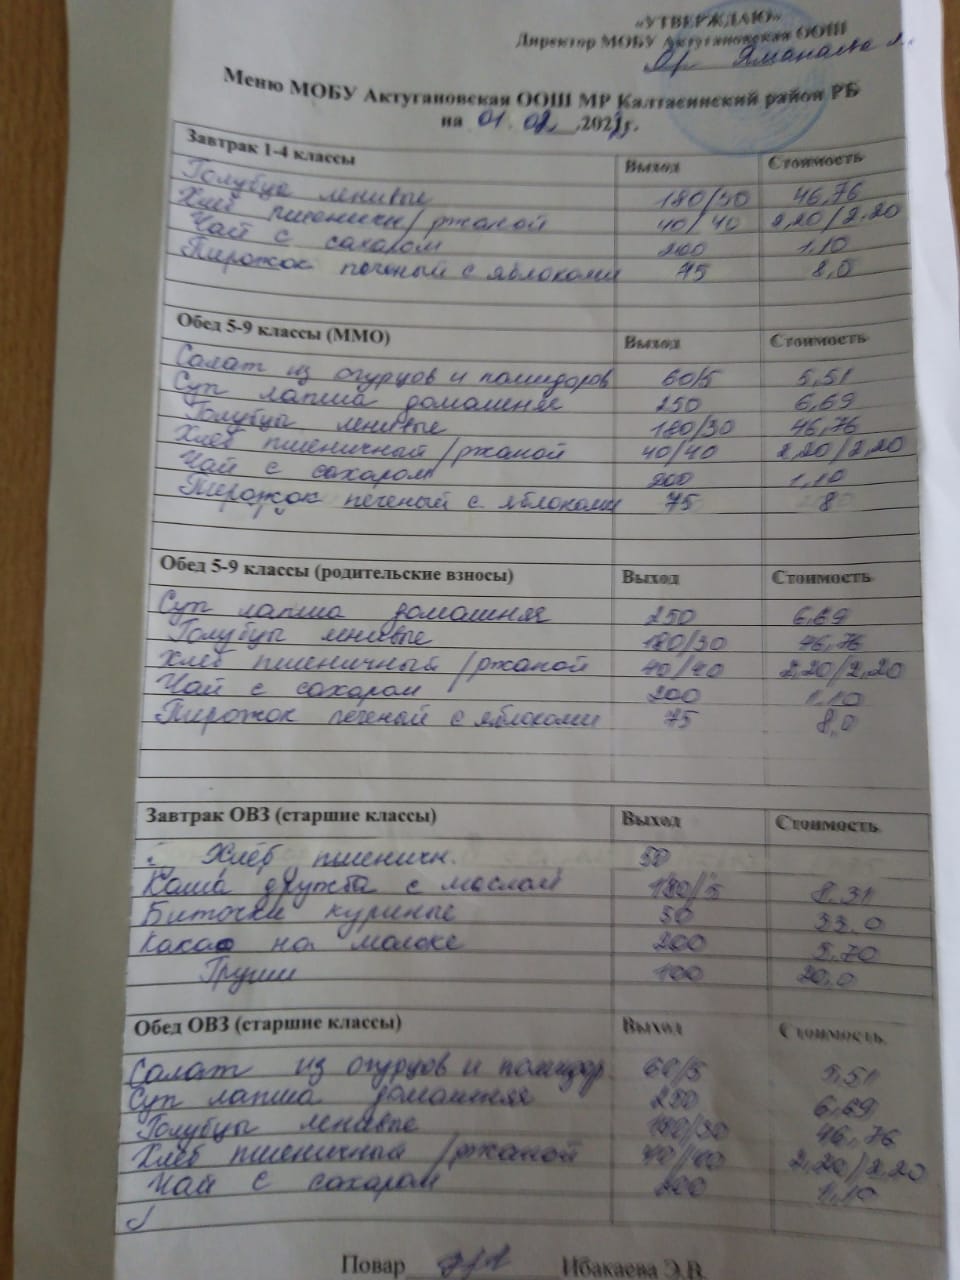 «УТВЕРЖДАЮ»
Директор МОБУ Актугановская ООШ
Меню МОБУ Актугановская ООШ МР Калтасинский район РБ
на 01.02.2021г.
Завтрак 1-4 классы Выход Стоимость
Голубцы ленивые 180/30 46,76
Хлеб пшеничн/ржаной 40/40 2,20/2,20
Чай с сахаром 200 1,10
Пирожок печеный с яблоками 75 8,0
Обед 5-9 классы (ММО) Выход Стоимость
Салат из огурцов и помидоров 60/5 5,51
Суп лапша домашняя 250 6,69
Голубцы ленивые 180/30 46,76
Хлеб пшеничный/ржаной 40/40 2,20/2,20
Чай с сахаром 200 1,10
Пирожок печеный с яблоками 75 8
Обед 5-9 классы (родительские взносы) Выход Стоимость
Суп лапша домашняя 250 6,69
Голубцы ленивые 180/30 46,76
Хлеб пшеничный/ржаной 40/40 2,20/2,20
Чай с сахаром 200 1,10
Пирожок печеный с яблоками 75 8,0
Завтрак ОВЗ (старшие классы) Выход Стоимость
Хлеб пшеничн. 50
Каша дружба с маслом 180/5 8,31
Биточки куриные 50 33,0
Какао на молоке 200 5,70
Груши 100 20,0
Обед ОВЗ (старшие классы) Выход Стоимость
Салат из огурцов и помидор 60/5 5,51
Суп лапша домашняя 250 6,69
Голубцы ленивые 180/30 46,76
Хлеб пшеничный/ржаной 40/40 2,20/2,20
Чай с сахаром 200 1,10
Повар Ибакаева Э.В.